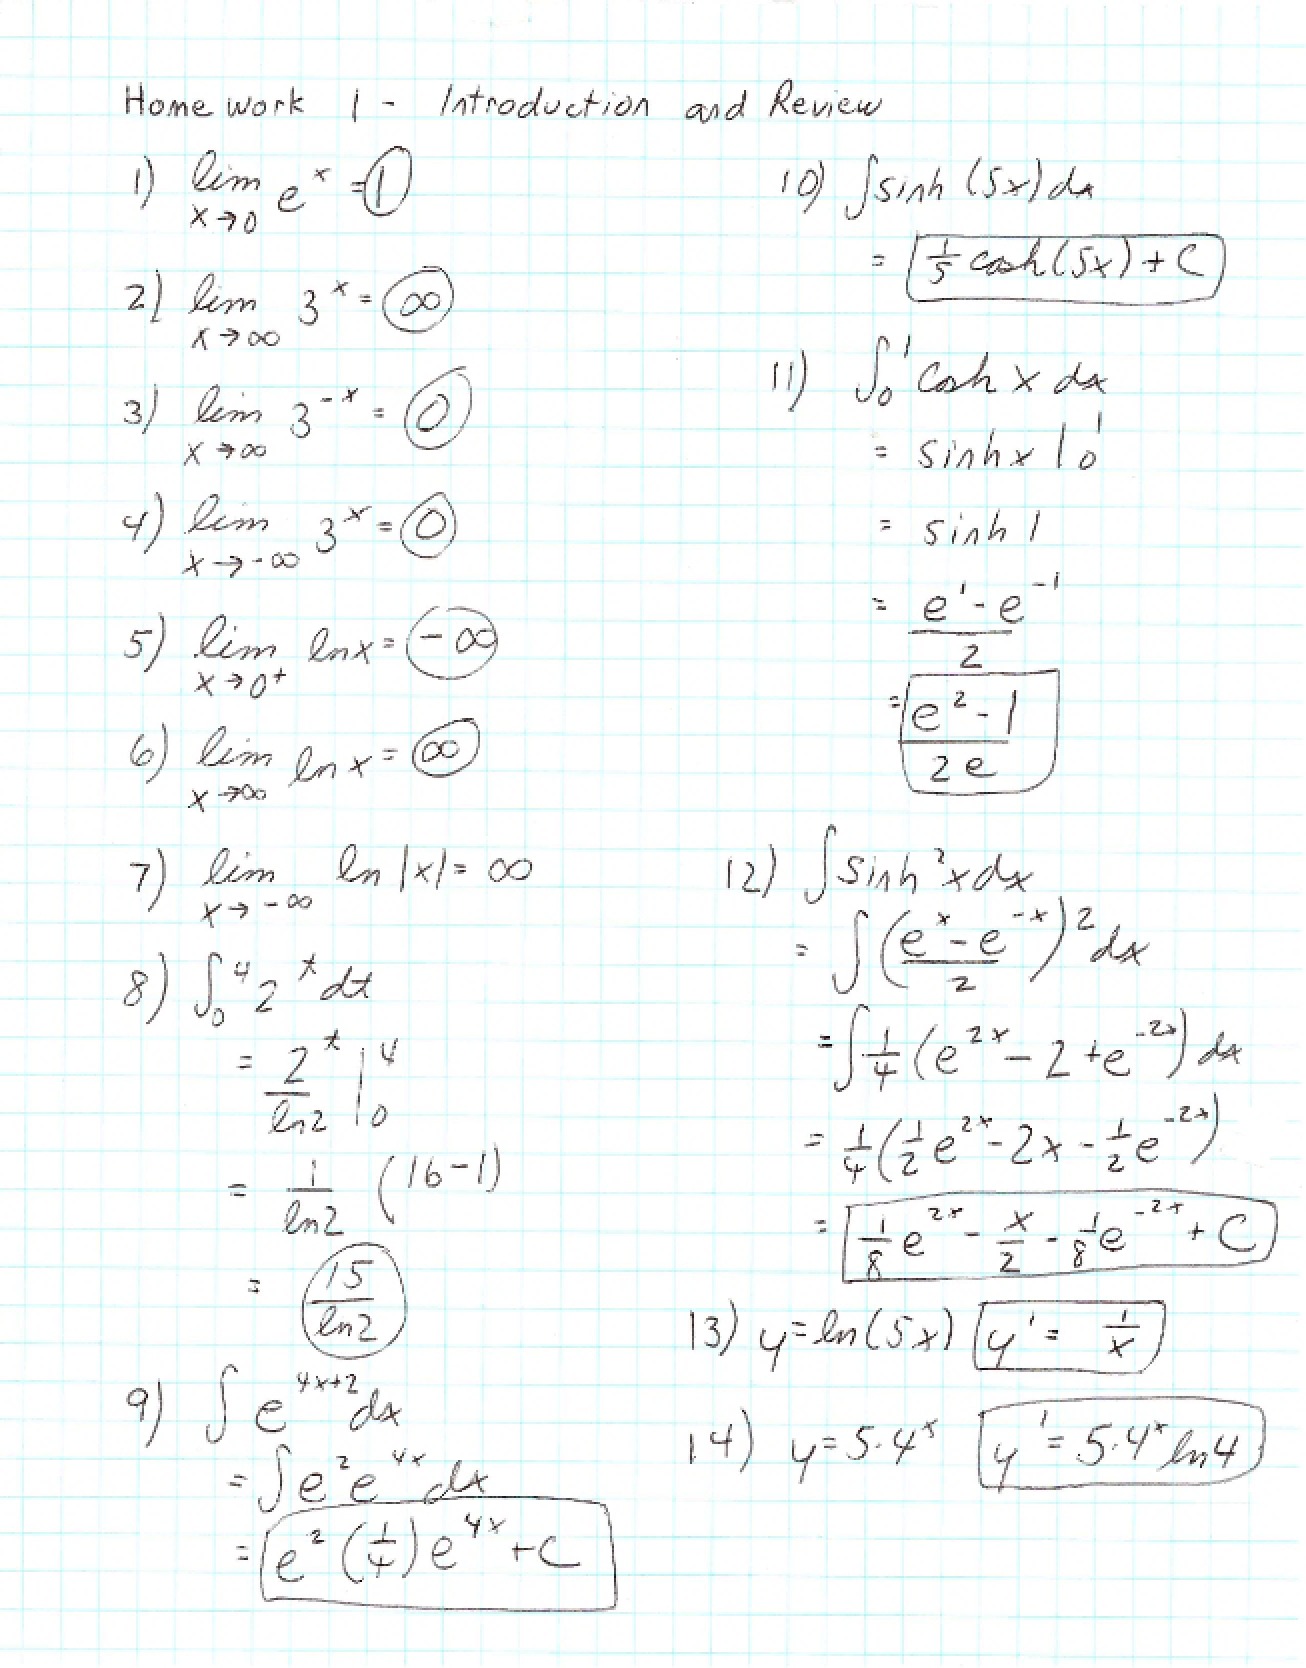 Homework 1 - Introduction and Review
1) lim e^x = 1
x→0
2) lim 3^x = ∞
x→∞
3) lim 3^-x = 0
x→∞
4) lim 3^x = 0
x→-∞
5) lim lnx = -∞
x→0+
6) lim lnx = ∞
x→∞
7) lim ln|x| = ∞
x→-∞
8) ∫_0^4 2^t dt
= 2^t/ln2 |_0^4
= 1/ln2 (16-1)
= 15/ln2
9) ∫ e^(4x+2) dx
= ∫ e^2 e^4x dx
= e^2 (1/4) e^4x + C
10) ∫ sinh(5x) dx
= 1/5 cosh(5x) + C
11) ∫_0^1 cosh x dx
= sinhx |_0^1
= sinh 1
= (e^1 - e^-1)/2
= (e^2 - 1)/2e
12) ∫ sinh^2 x dx
= ∫ ((e^x - e^-x)/2)^2 dx
= ∫ 1/4 (e^2x - 2 + e^-2x) dx
= 1/4 (1/2 e^2x - 2x - 1/2 e^-2x)
= 1/8 e^2x - x/2 - 1/8 e^-2x + C
13) y = ln(5x) y' = 1/x
14) y = 5·4^x y' = 5·4^x ln4